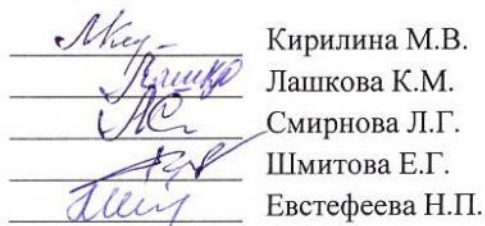 Кирилина М.В.
Лашкова К.М.
Смирнова Л.Г.
Шмитова Е.Г.
Евстефеева Н.П.